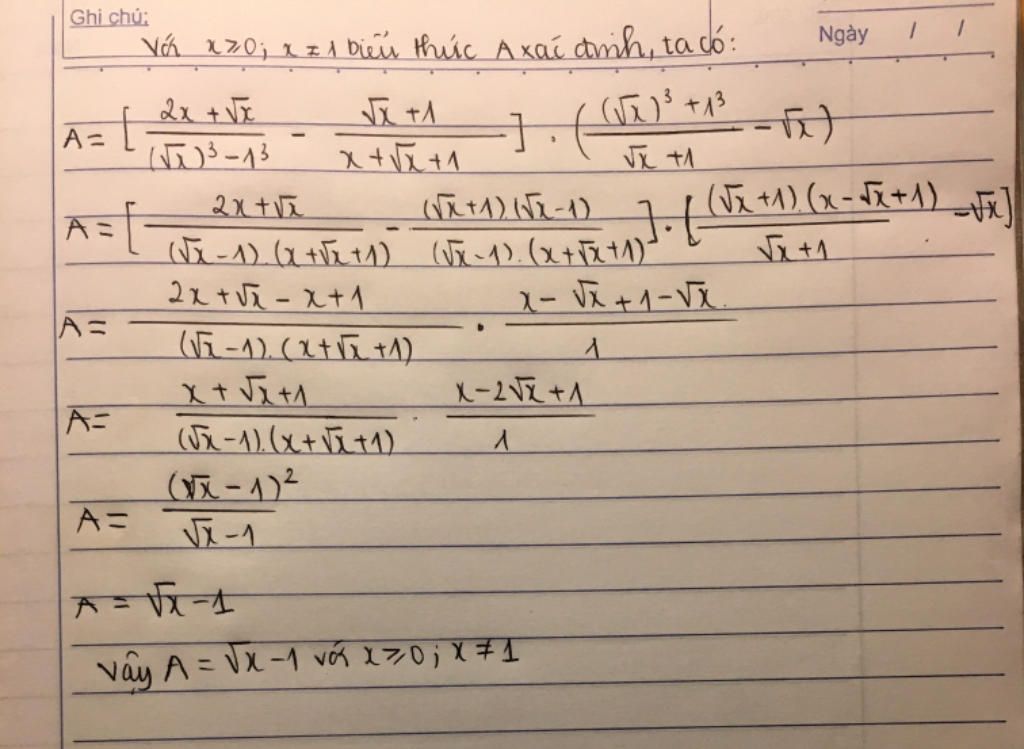 Ghi chú:
Ngày / /
Với x≥0; x≠1 biểu thức A xác định, ta có:
A = [ (2x+√x)/((√x)³-1³) - (√x+1)/(x+√x+1) ] . ( ((√x)³+1³)/(√x+1) - √x )
A = [ (2x+√x)/((√x-1).(x+√x+1)) - ((√x+1).(√x-1))/((√x-1).(x+√x+1)) ] . [ ((√x+1).(x-√x+1))/(√x+1) - √x ]
A = (2x+√x-x+1)/((√x-1).(x+√x+1)) . (x-√x+1-√x)/1
A = (x+√x+1)/((√x-1).(x+√x+1)) . (x-2√x+1)/1
A = (√x-1)²/(√x-1)
A = √x-1
Vậy A = √x-1 với x≥0; x≠1